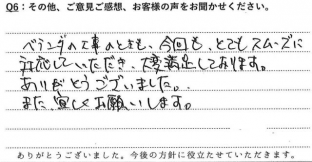 Q6：その他、ご意見ご感想、お客様の声をお聞かせください。
ベランダの工事のときも、今回も、とてもスムーズに
対応していただき、大変満足しております。
ありがとうございました。
また、宜しくお願いします。
ありがとうございました。今後の方針に役立たせていただきます。